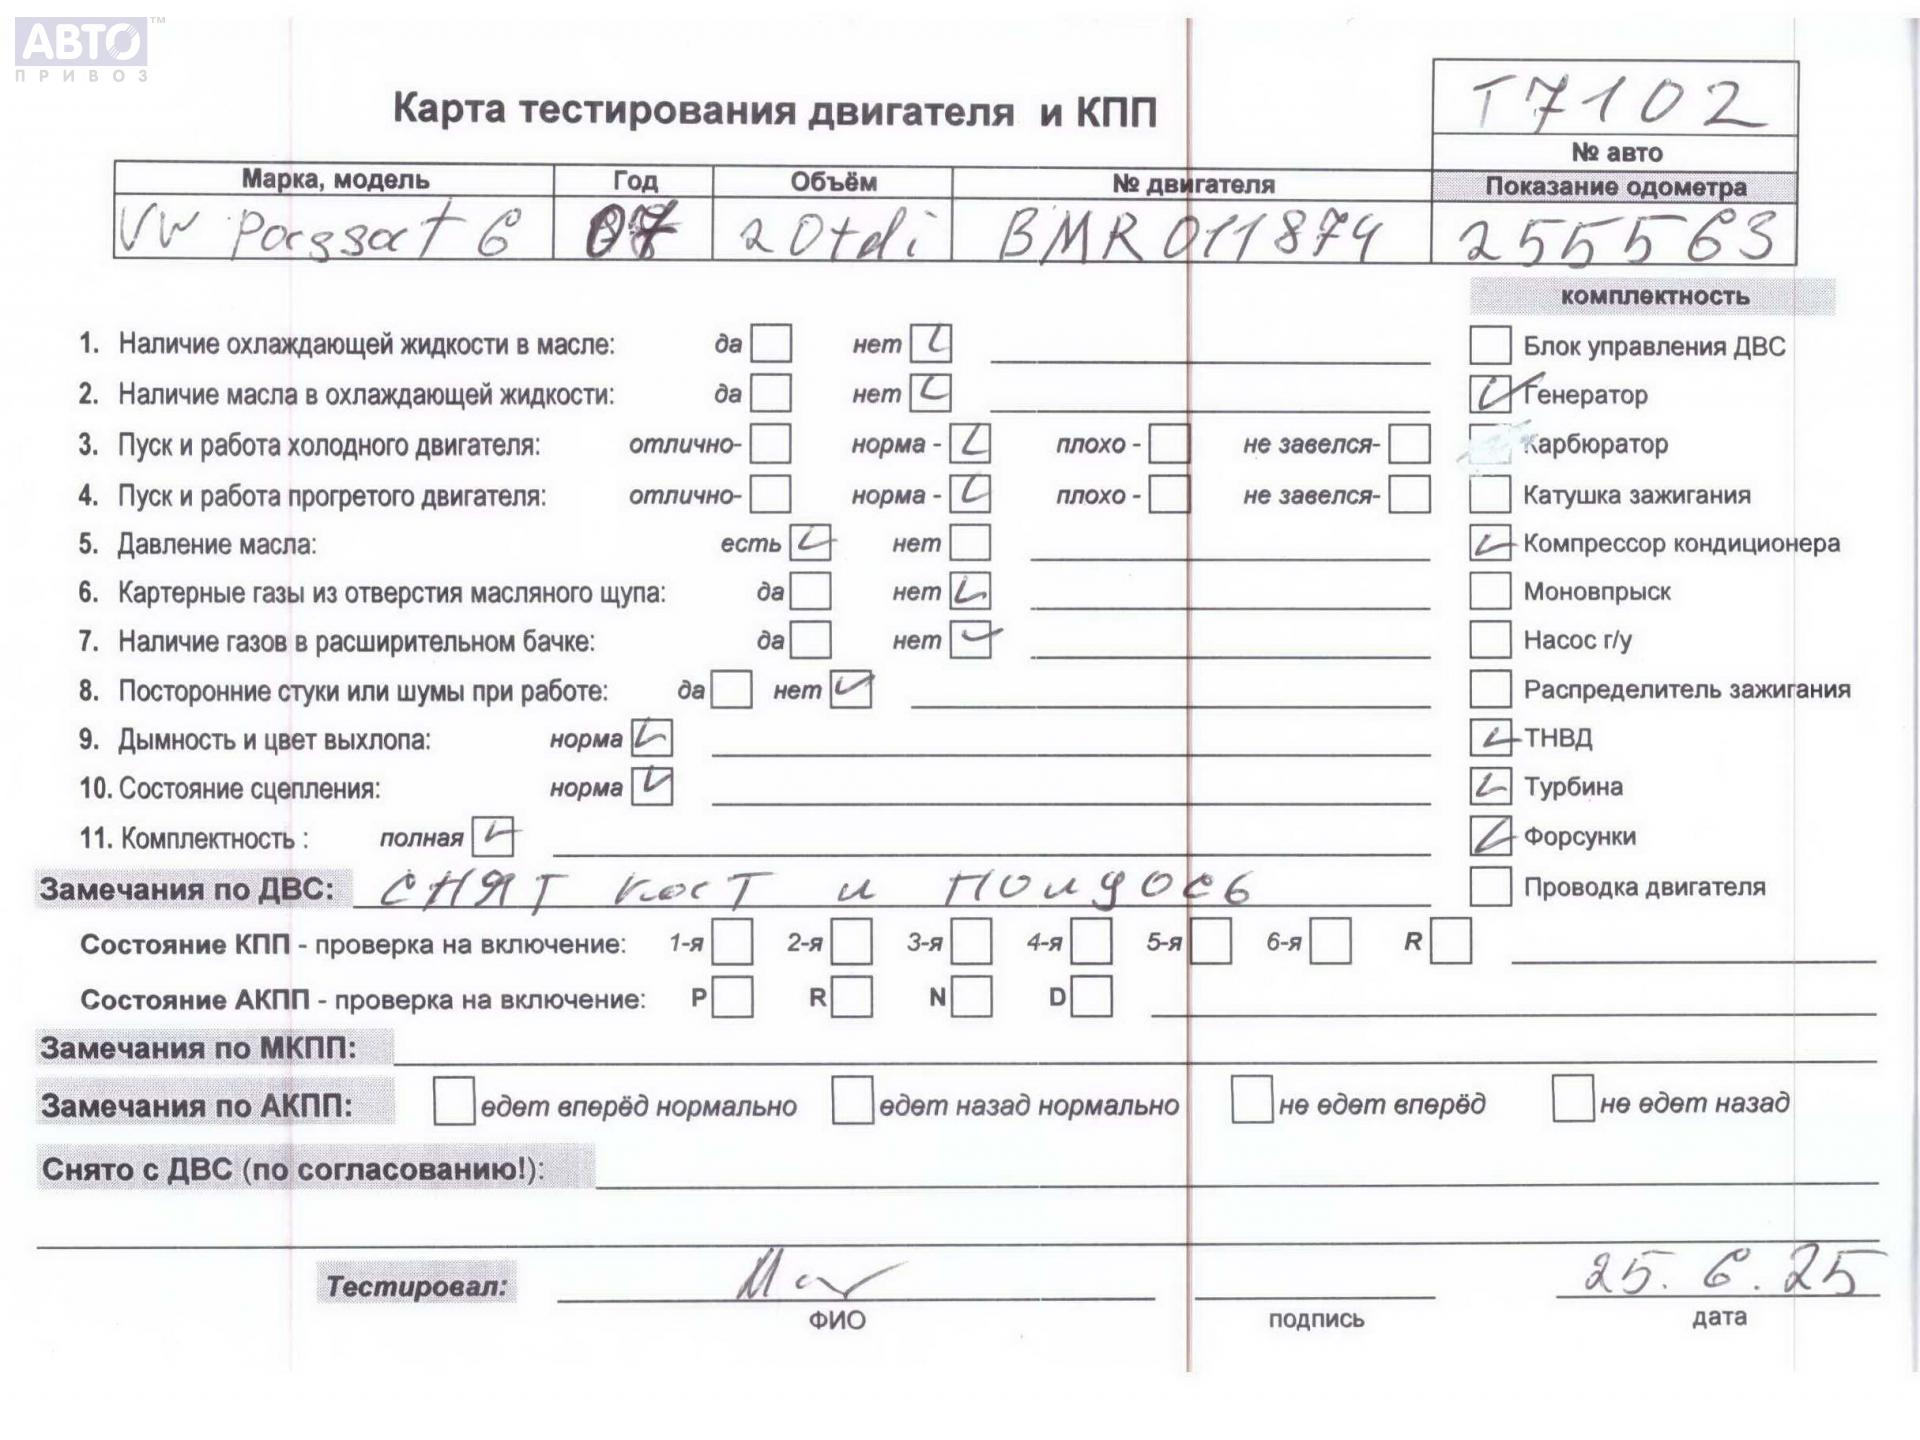 АВТО™
ПРИВОЗ
Карта тестирования двигателя и КПП
T7102
№ авто
Марка, модель Год Объём № двигателя Показание одометра
VW Passat 6 07 2 0 tdi BMR 011874 255563
комплектность
1. Наличие охлаждающей жидкости в масле: да нет Блок управления ДВС
2. Наличие масла в охлаждающей жидкости: да нет Генератор
3. Пуск и работа холодного двигателя: отлично- норма - плохо - не завелся- Карбюратор
4. Пуск и работа прогретого двигателя: отлично- норма - плохо - не завелся- Катушка зажигания
5. Давление масла: есть нет Компрессор кондиционера
6. Картерные газы из отверстия масляного щупа: да нет Моновпрыск
7. Наличие газов в расширительном бачке: да нет Насос г/у
8. Посторонние стуки или шумы при работе: да нет Распределитель зажигания
9. Дымность и цвет выхлопа: норма ТНВД
10. Состояние сцепления: норма Турбина
11. Комплектность : полная Форсунки
Замечания по ДВС: СНЯТ КОСТ И ПОЛДОСЬ Проводка двигателя
Состояние КПП - проверка на включение: 1-я 2-я 3-я 4-я 5-я 6-я R
Состояние АКПП - проверка на включение: P R N D
Замечания по МКПП:
Замечания по АКПП: едет вперёд нормально едет назад нормально не едет вперёд не едет назад
Снято с ДВС (по согласованию!):
Тестировал: 25.6.25
ФИО подпись дата